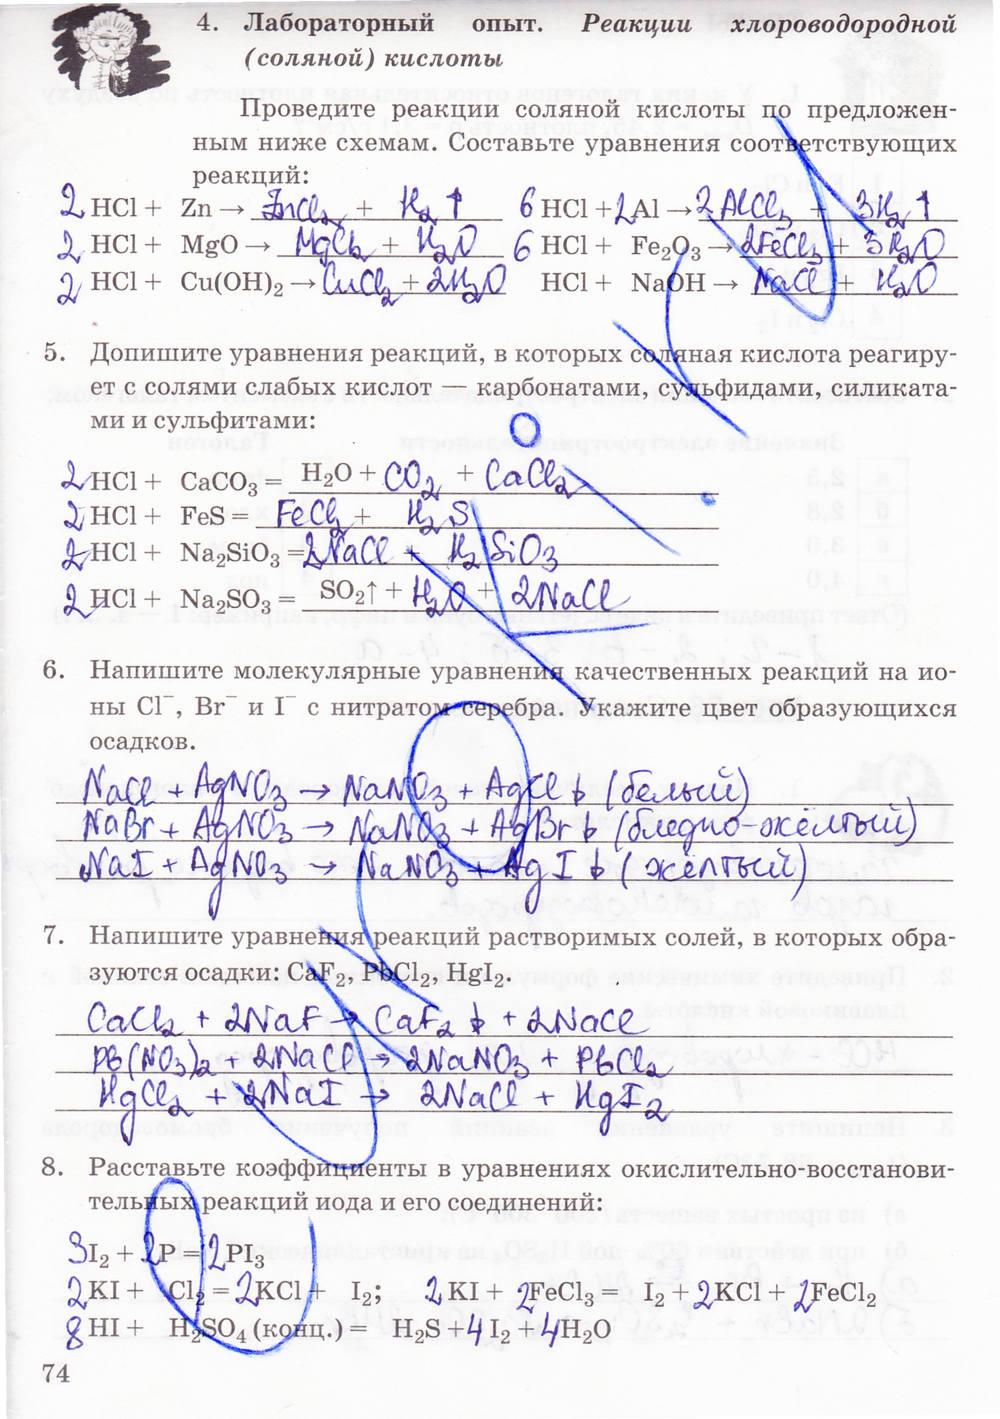 4. Лабораторный опыт. Реакции хлороводородной
(соляной) кислоты
Проведите реакции соляной кислоты по предложен-
ным ниже схемам. Составьте уравнения соответствующих
реакций:
2 HCl + Zn → ZnCl₂ + H₂↑ 6 HCl + 2Al → 2AlCl₃ + 3H₂↑
2 HCl + MgO → MgCl₂ + H₂O 6 HCl + Fe₂O₃ → 2FeCl₃ + 3H₂O
2 HCl + Cu(OH)₂ → CuCl₂ + 2H₂O HCl + NaOH → NaCl + H₂O
5. Допишите уравнения реакций, в которых соляная кислота реагиру-
ет с солями слабых кислот — карбонатами, сульфидами, силиката-
ми и сульфитами:
2 HCl + CaCO₃ = H₂O + CO₂ + CaCl₂
2 HCl + FeS = FeCl₂ + H₂S
2 HCl + Na₂SiO₃ = 2NaCl + H₂SiO₃
2 HCl + Na₂SO₃ = SO₂↑ + H₂O + 2NaCl
6. Напишите молекулярные уравнения качественных реакций на ио-
ны Cl⁻, Br⁻ и I⁻ с нитратом серебра. Укажите цвет образующихся
осадков.
NaCl + AgNO₃ → NaNO₃ + AgCl↓ (белый)
NaBr + AgNO₃ → NaNO₃ + AgBr↓ (бледно-жёлтый)
NaI + AgNO₃ → NaNO₃ + AgI↓ (жёлтый)
7. Напишите уравнения реакций растворимых солей, в которых обра-
зуются осадки: CaF₂, PbCl₂, HgI₂.
CaCl₂ + 2NaF → CaF₂↓ + 2NaCl
Pb(NO₃)₂ + 2NaCl → 2NaNO₃ + PbCl₂
HgCl₂ + 2NaI → 2NaCl + HgI₂
8. Расставьте коэффициенты в уравнениях окислительно-восстанови-
тельных реакций иода и его соединений:
3I₂ + 2P = 2PI₃
2KI + Cl₂ = 2KCl + I₂; 2KI + 2FeCl₃ = I₂ + 2KCl + 2FeCl₂
8 HI + H₂SO₄ (конц.) = H₂S + 4I₂ + 4H₂O
74